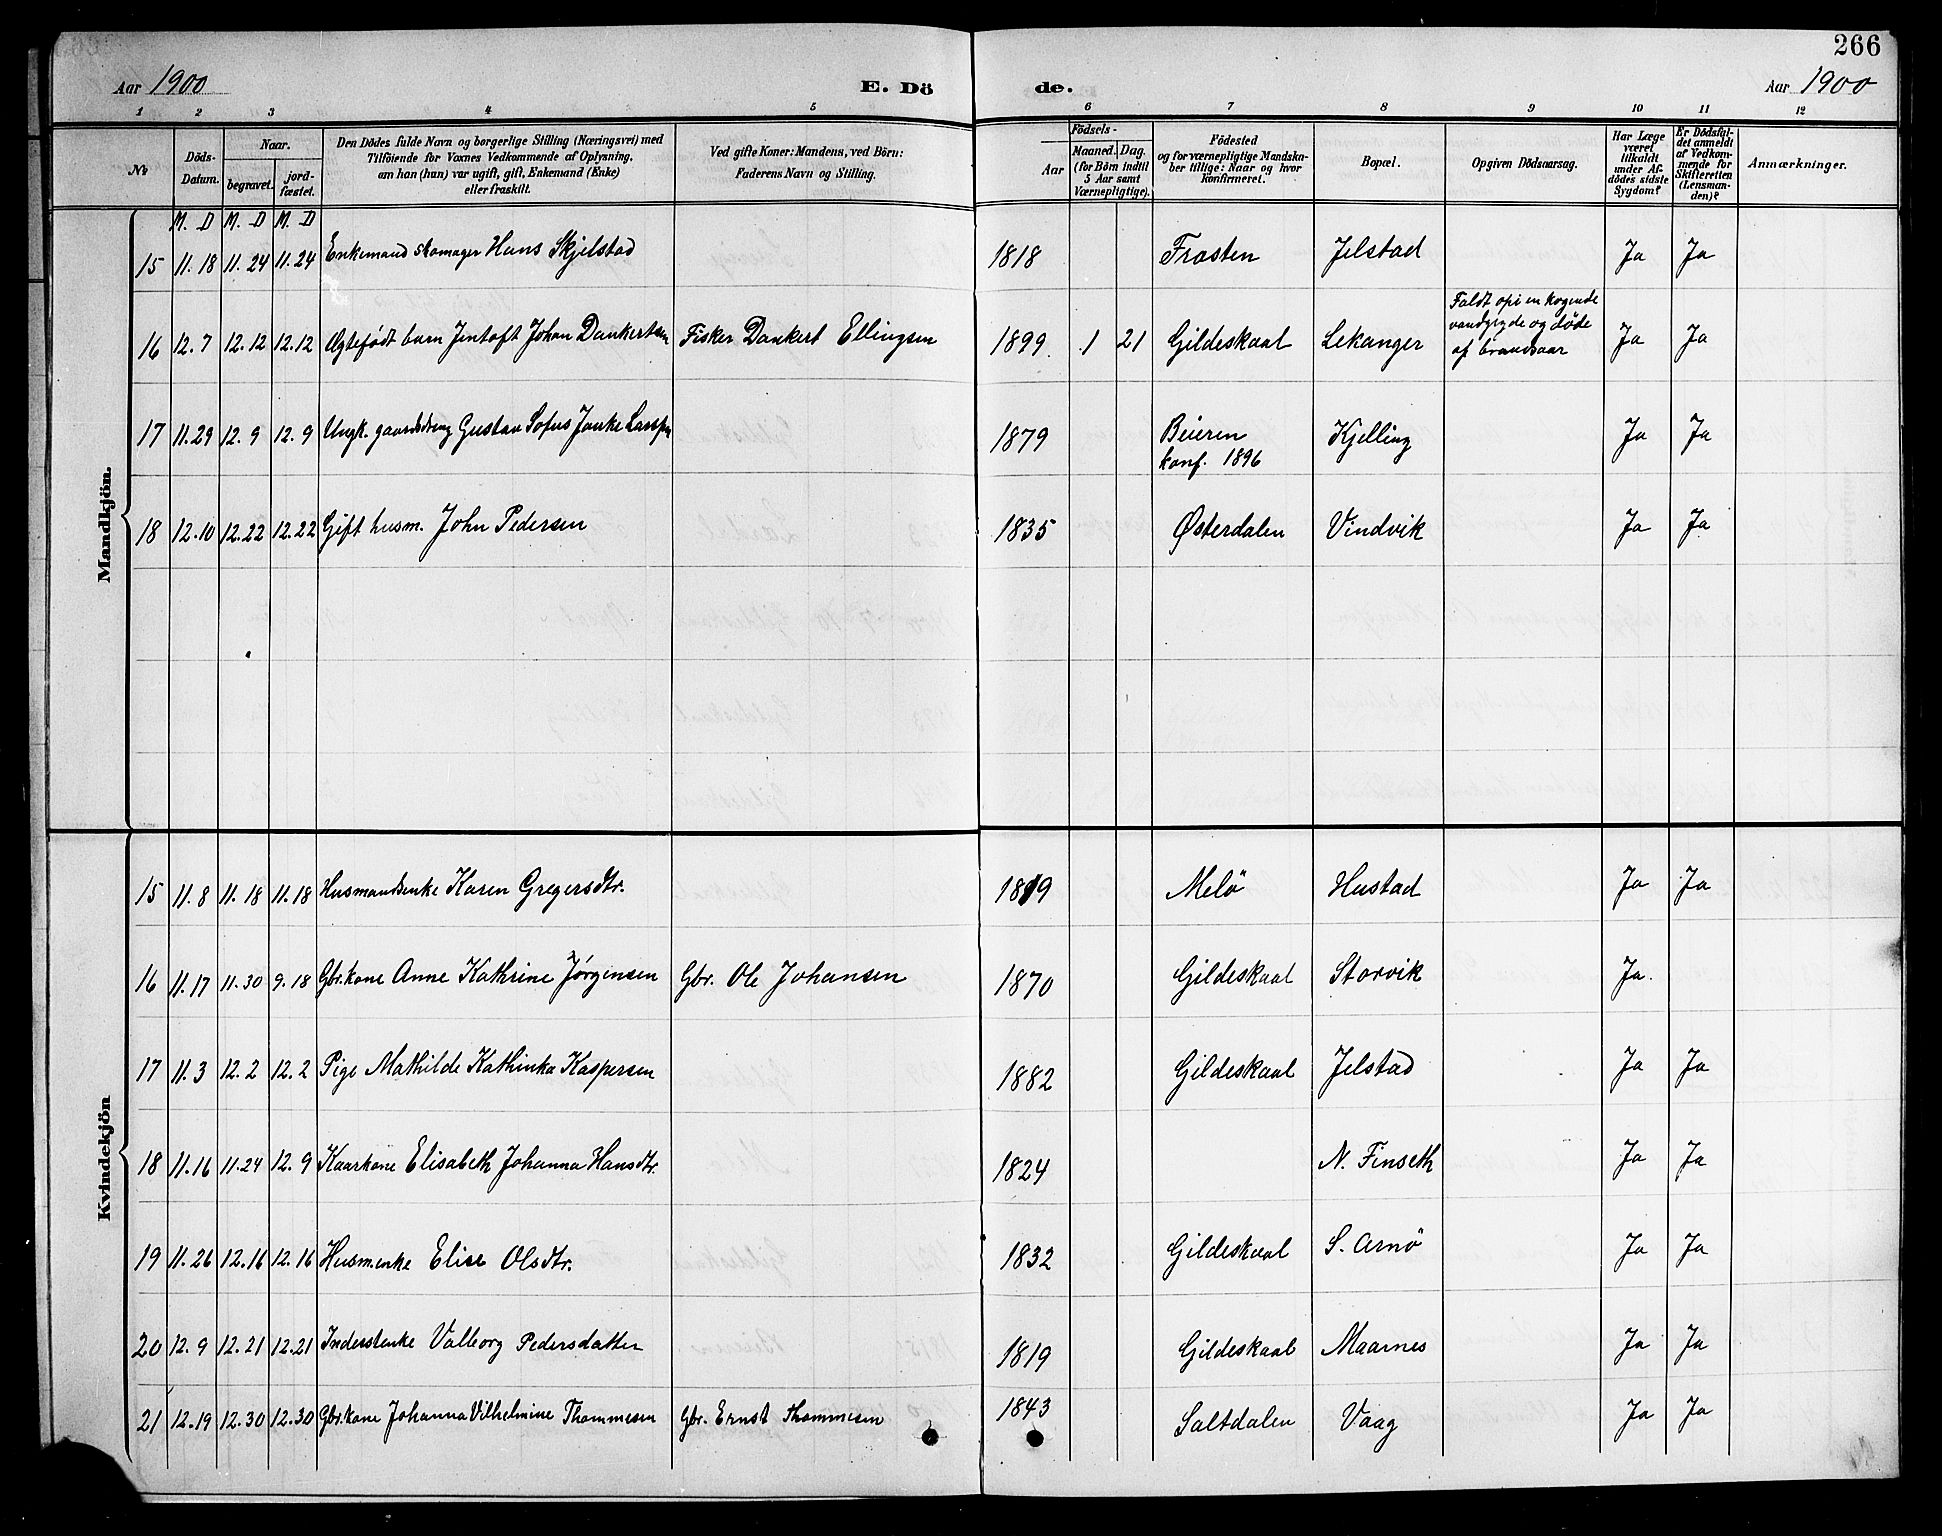 266
Aar 1900 E. Dö de. Aar 1900
1 2 3 4 5 6 7 8 9 10 11 12
No
Döds-Datum.
Naar.
begravet.
jord-fæstet.
Den Dödes fulde Navn og borgerlige Stilling (Næringsvei) med
Tilföiende for Voxnes Vedkommende af Oplysning,
om han (hun) var ugift, gift, Enkemand (Enke)
eller fraskilt.
Ved gifte Koner: Mandens, ved Börn:
Faderens Navn og Stilling.
Födsels-
Aar
Maaned. Dag.
(for Börn indtil
5 Aar samt
Værnepligtige).
Födested
og for værnepligtige Mandska-
ber tillige: Naar og hvor
konfirmeret.
Bopæl.
Opgiven Dödsaarsag.
Har Læge
været
tilkaldt
under Af-
dödes sidste
Sygdom?
Er Dödsfal-
det anmeldt
af Vedkom-
mende for
Skifteretten
(Lensman-
den)?
Anmærkninger.
M. D M. D M. D
Mandkjön.
15 11.18 11.24 11.24 Enkemand skomager Hans Skjelstad 1818 Frosten Jelstad Ja Ja
16 12.7 12.12 12.12 Ægtefødt barn Jentoft Johan Dankertsen Fisker Dankert Ellingsen 1899 1 21 Gildeskaal Lekanger Faldt opi en kogende
vandgryde og døde
af brandsaar Ja Ja
17 11.29 12.9 12.9 Ungk. gaardsdreng Gustav Sofus Janke Larssen 1879 Beieren
konf. 1896 Kjelling Ja Ja
18 12.10 12.22 12.22 Gift husm. John Pedersen 1835 Østerdalen Vindvik Ja Ja
Kvindekjön
15 11.8 11.18 11.18 Husmandsenke Karen Gregersdtr. 1819 Melö Hustad Ja Ja
16 11.17 11.30 9.18 Gbr.kone Anne Kathrine Jørgensen Gbr. Ole Johansen 1870 Gildeskaal Storvik Ja.
17 11.3 12.2 12.2 Pige Mathilde Kathinka Kaspersen 1882 Gildeskaal Jelstad Ja Ja
18 11.16 11.24 12.9 Kaarkone Elisabeth Johanna Hansdtr. 1824 N. Finseth Ja Ja
19 11.26 12.16 12.16 Husm.enke Elise Olsdtr. 1832 Gildeskaal S. Arnö Ja Ja
20 12.9 12.21 12.21 Inderstenke Valborg Pedersdatter 1819 Gildeskaal Maarnes Ja Ja
21 12.19 12.30 12.30 Gbr.kone Johanna Vilhelmine Thommesen Gbr. Ernst Thommesen 1843 Saltdalen Vaag Ja Ja